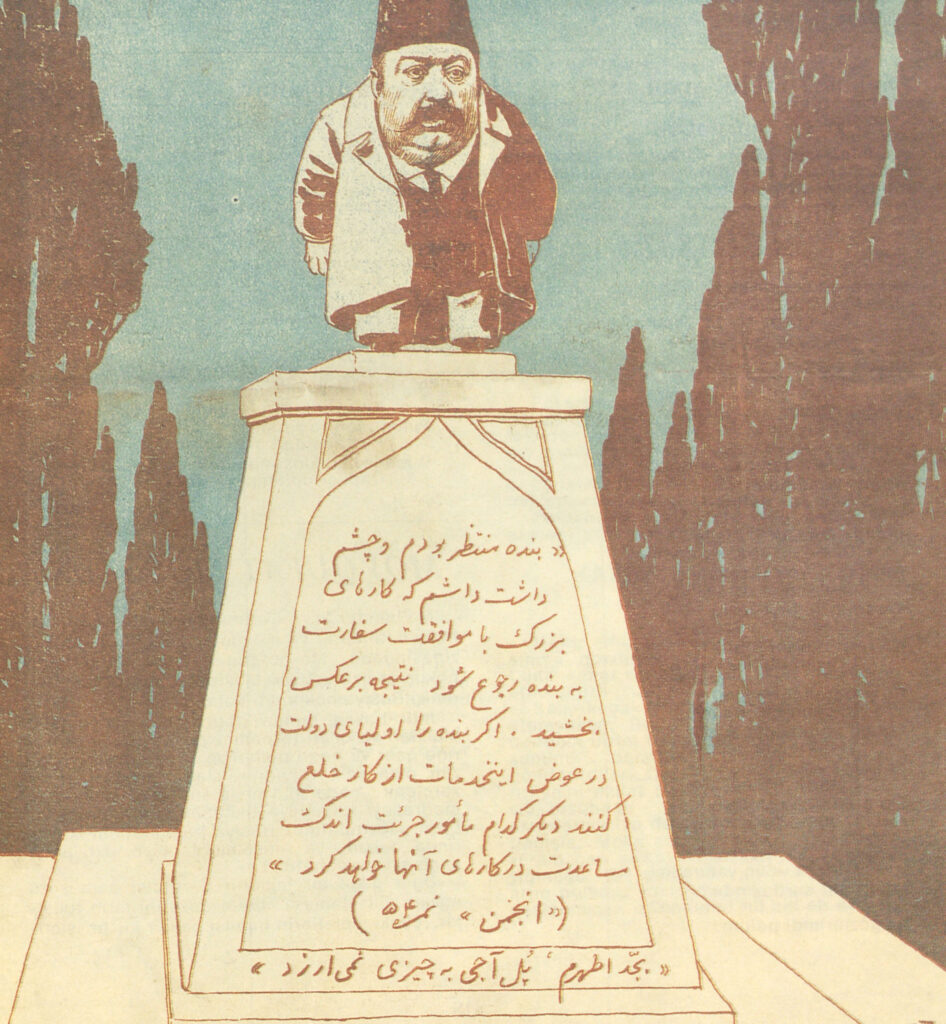 « بنده منتظر بودم وچشم
داشت داشتم که کارهای
بزرک با موافقت سفارت
به بنده رجوع شود نتیجه برعکس
بخشید . اکر بنده را اولیای دولت
در عوض اینخدمات از کار خلع
کنند دیکر کدام مأمور جرئت اندک
مساعدت در کارهای آنها خواهد کرد »
(« انجمن » نمره ۵۴)
« بجدّ اطهرم ، پُل آجی به چیزی نمی ارزد »